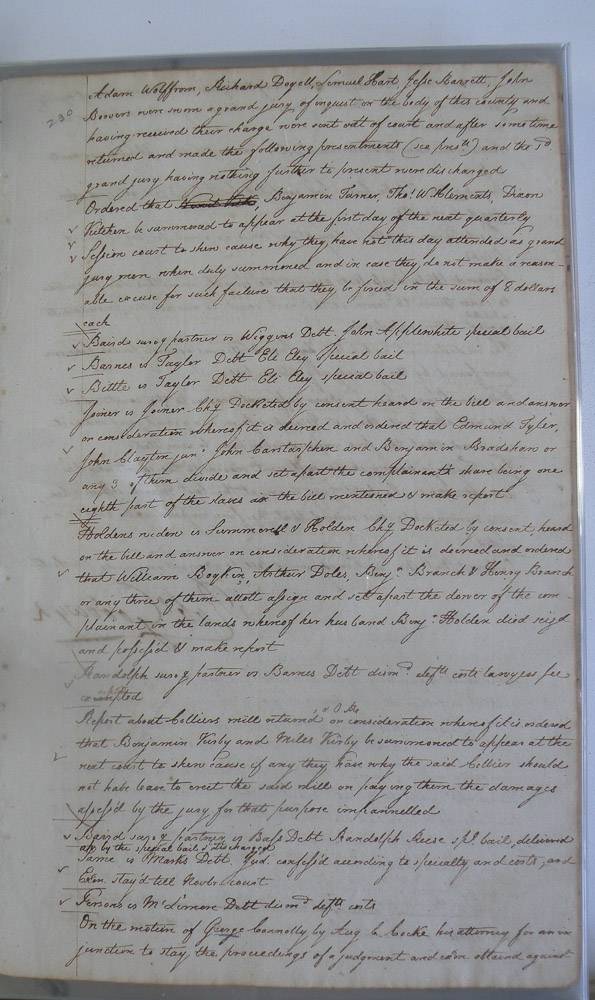 230
Adam Wolffrom, Richard Dogell, Lemuel Hart, Jesse Barrett, John
Bowers were sworn a grand jury of inquest for the body of this county and
having received their charge were sent out of court and after sometime
returned and made the following presentments (see prests) and the sd
grand jury having nothing further to present were discharged
Ordered that Benjamin Turner, Thos W Clements, Dixon
Kitchen be summoned to appear at the first day of the next quarterly
Session court to shew cause why they have not this day attended as grand
jury men when duly summoned and in case they do not make a reason-
able excuse for such failure that they be fined in the sum of 8 dollars
each
Baird survg partner vs Wiggins Debt. John Applewhite special bail
Barnes vs Taylor Debt Eli Eley special bail
Bittle vs Taylor Debt Eli Eley special bail
Joiner vs Joiner Chy Docketed by consent heard on the bill and answer
on consideration whereof it is decreed and ordered that Edmund Tyler,
John Clayton junr John Carstarphen and Benjamin Bradshaw or
any 3 of them divide and set apart the complainants share being one
eighth part of the slaves in the bill mentioned & make report
Holdens widow vs Summerell & Holden Chy Docketed by consent, heard
on the bill and answer on consideration whereof it is decreed and ordered
that William Boykin, Arthur Doles, Benjn Branch & Henry Branch
or any three of them allott assign and set apart the dower of the com-
plainant in the lands whereof her husband Benjn Holden died seizd
and possess'd & make report
Randolph survg partner vs Barnes Debt dismd defts costs lawyers fee
excepted
Report about Colliers mill returned on consideration whereof it is ordered
that Benjamin Kirby and Miles Kirby be summoned to appear at the
next court to shew cause if any they have why the said Collier should
not have leave to erect the said mill on paying them the damages
assess'd by the jury for that purpose impannelled
Baird survg partner vs Bass Debt Randolph Reese spl. bail, delivered
up by the special bail & Discharged
Same vs Marks Debt Jud. confess'd according to specialty and costs, and
Exon. stay'd till Novbr court
Persons vs McLemore Debt dismd defts costs
On the motion of George Connolly by Aug C. Cocke his attorney for an in
junction to stay the proceedings of a judgment and exon obtaind against